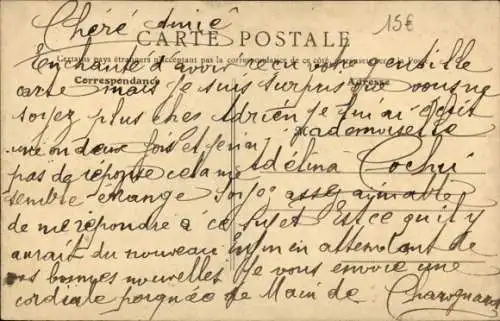 Chéré Amie
15€
CARTE POSTALE
Certains pays étrangers n'acceptant pas la correspondance de ce côté
Enchanté d'avoir reçu votre gentille
Correspondance Adresse
carte mais je suis surpris que vous ne
soyez plus chez Adrien je lui ai écrit
Mademoiselle
une ou deux fois et je n'ai
Adélina Cochui
pas de réponse cela me
semble étrange soyez assez aimable
de me répondre à ce sujet Est ce qu'il y
aurait du nouveau enfin en attendant de
vos bonnes nouvelles je vous envoie une
cordiale poignée de Main de